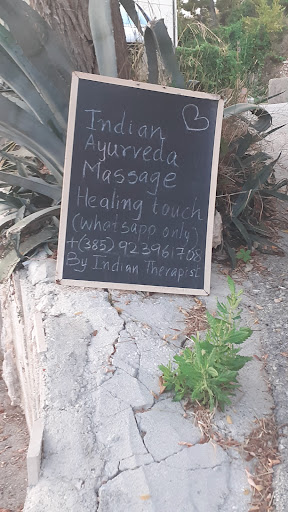 Indian
Ayurveda
Massage
Healing touch
(whatsapp only)
+(385) 923961708
By Indian Therapist